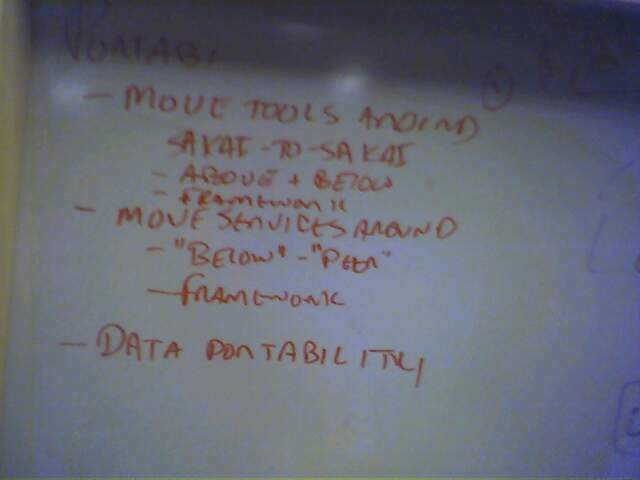 PORTABI
- MOVE TOOLS AROUND
SAKAI-TO-SAKAI
- ABOVE + BELOW
- FRAMEWORK
- MOVE SERVICES AROUND
- "BELOW" - "PEER"
- FRAMEWORK
- DATA PORTABILITY